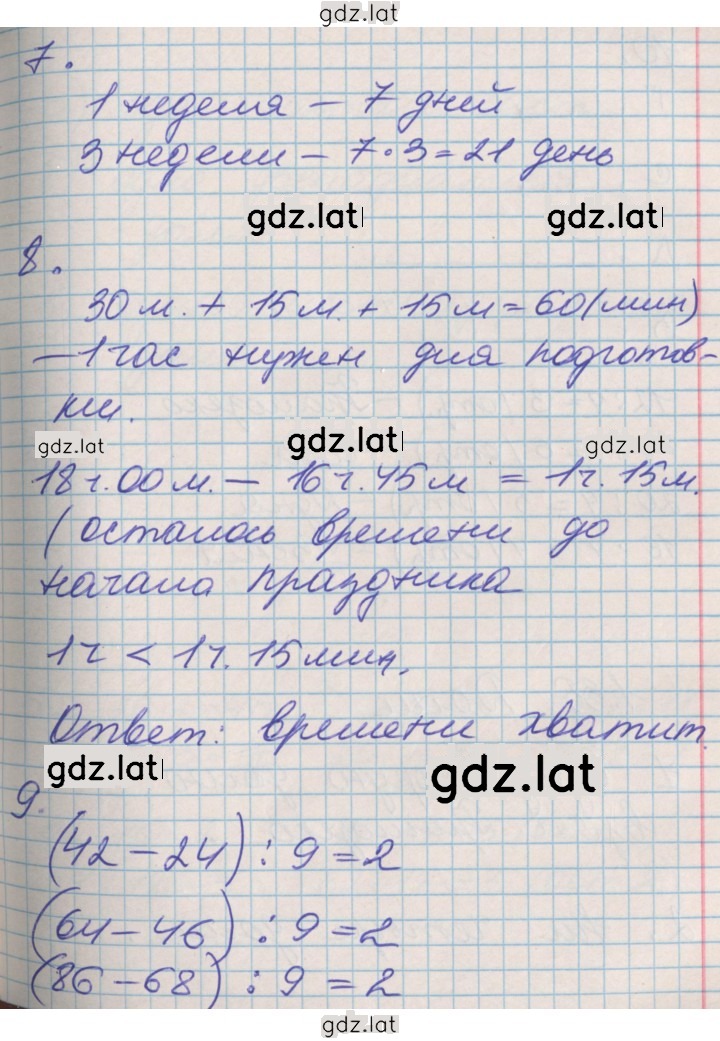 gdz.lat
7.
1 неделя – 7 дней
3 недели – 7·3=21 день
gdz.lat gdz.lat
8.
30 м. + 15 м. + 15 м = 60 (мин)
– 1 час нужен для подготов-
ки.
gdz.lat gdz.lat gdz.lat
18 ч. 00 м. – 16 ч. 45 м = 1 ч. 15 м.
(осталось времени до
начала праздника
1 ч < 1 ч. 15 мин.
Ответ: времени хватит.
gdz.lat gdz.lat
9.
(42 – 24) : 9 = 2
(64 – 46) : 9 = 2
(86 – 68) : 9 = 2
gdz.lat